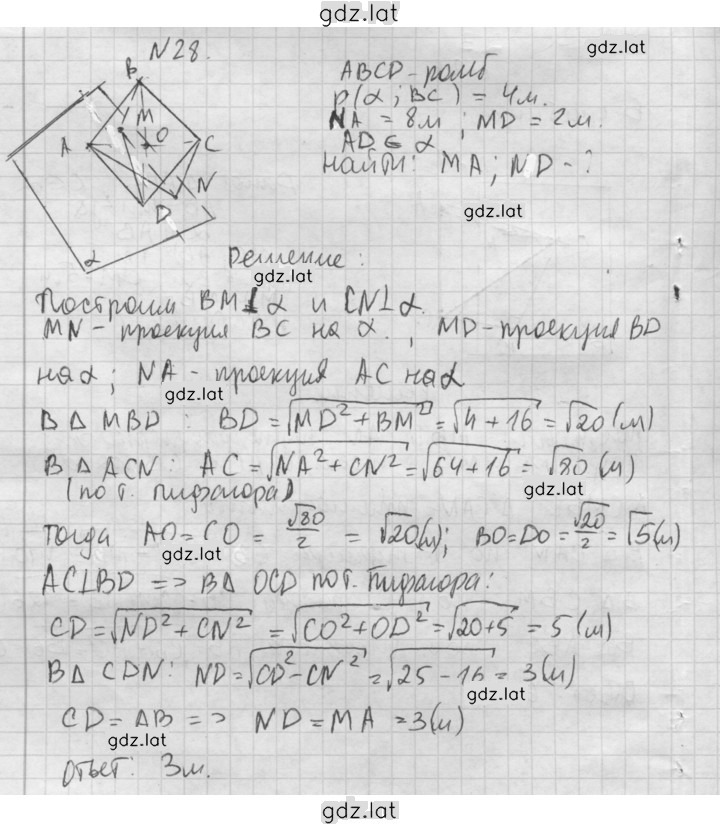 gdz.lat
N28.
gdz.lat
ABCD-ромб
ρ(α; BC) = 4м.
NA = 8м; MD = 2м.
AD ∈ α
найти: MA; ND - ?
B
M
A
O
C
N
D
α
gdz.lat
Решение:
gdz.lat
Построим BM⊥α и CN⊥α.
MN - проекция BC на α., MD-проекция BD
на α; NA - проекция AC на α
gdz.lat
В Δ MBD : BD = √MD² + BM² = √4 + 16 = √20 (м)
В Δ ACN: AC = √NA² + CN² = √64+16 = √80 (м)
(по т. Пифагора)
gdz.lat
Тогда AO = CO = √80/2 = √20(м); BO=DO = √20/2 = √5(м)
gdz.lat
AC⊥BD => В Δ OCD по т. Пифагора:
CD = √ND² + CN² = √CO² + OD² = √20+5 = 5 (м)
В Δ CDN: ND = √CD² - CN² = √25 - 16 = 3(м)
gdz.lat
CD = AB => ND = MA = 3(м)
gdz.lat
Ответ: 3м.
gdz.lat